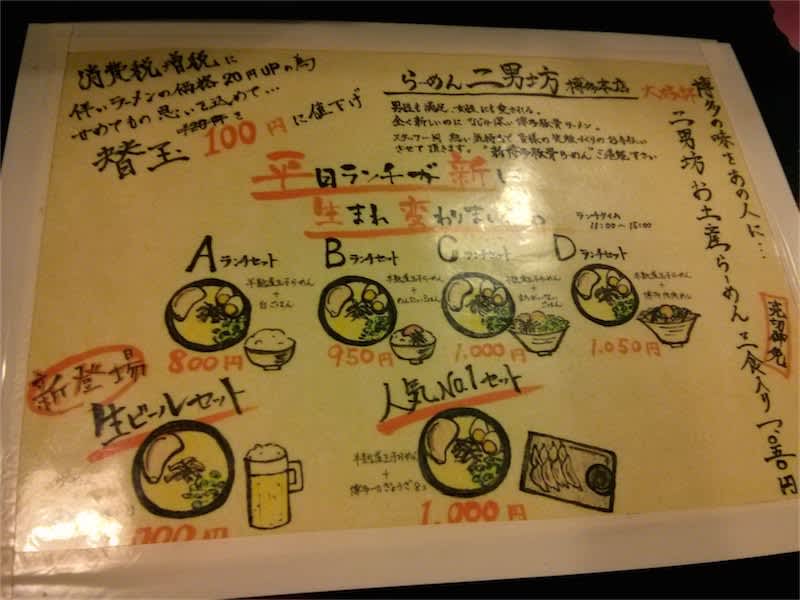 消費税増税に
伴いラーメンの価格20円UPの為
せめてもの思いを込めて…
120円を
替玉 100円に値下げ
らーめん 二男坊 博多本店
男性も満足、女性にも愛される。
全く新しいのに なじみ深い 博多豚骨ラーメン。
スタッフ一同 熱い気持ちで 皆様の笑顔づくりのお手伝い
させて頂きます。"新博多豚骨らーめん"ご堪能下さい
平日ランチが新に
生まれ変わりました。
ランチタイム
11:00〜15:00
Aランチセット
半熟煮玉子らーめん
+
白ごはん
800円
Bランチセット
半熟煮玉子らーめん
+
めんたいごはん
950円
Cランチセット
半熟煮玉子らーめん
+
1.000円
Dランチセット
半熟煮玉子らーめん
+
1.050円
新登場
生ビールセット
人気No.1セット
半熟煮玉子らーめん
+
博多一口ぎょうざ8コ
1.000円
博多の味をあの人に…
二男坊お土産らーめん二食入り 一、〇五〇円
完切御免